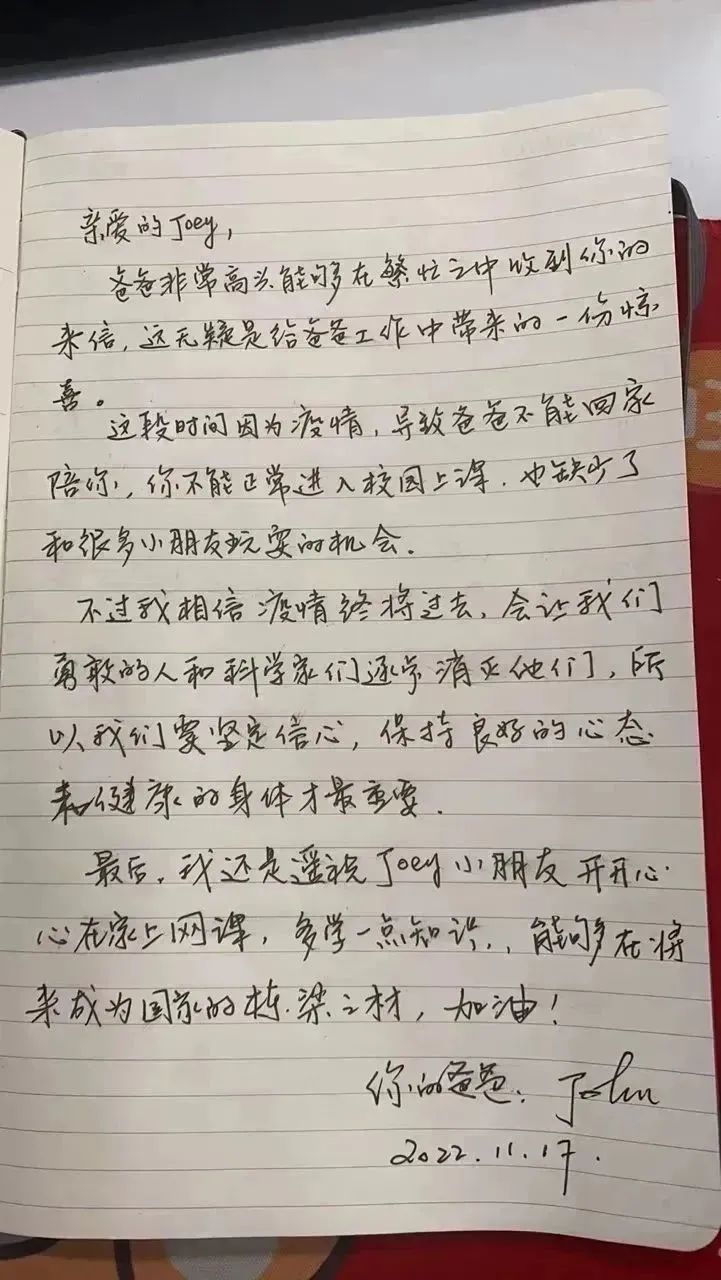 亲爱的Joey,
爸爸非常高兴能够在繁忙之中收到你的
来信,这无疑是给爸爸工作中带来的一份惊
喜。
这段时间因为疫情,导致爸爸不能回家
陪你,你不能正常进入校园上课,也缺少了
和很多小朋友玩耍的机会.
不过我相信疫情终将过去,会让我们
勇敢的人和科学家们逐步消灭他们,所
以我们要坚定信心,保持良好的心态
和健康的身体才最重要.
最后,我还是遥祝Joey小朋友开开心
心在家上网课,多学一点知识,能够在将
来成为国家的栋梁之材,加油!
你的爸爸:John
2022.11.17.